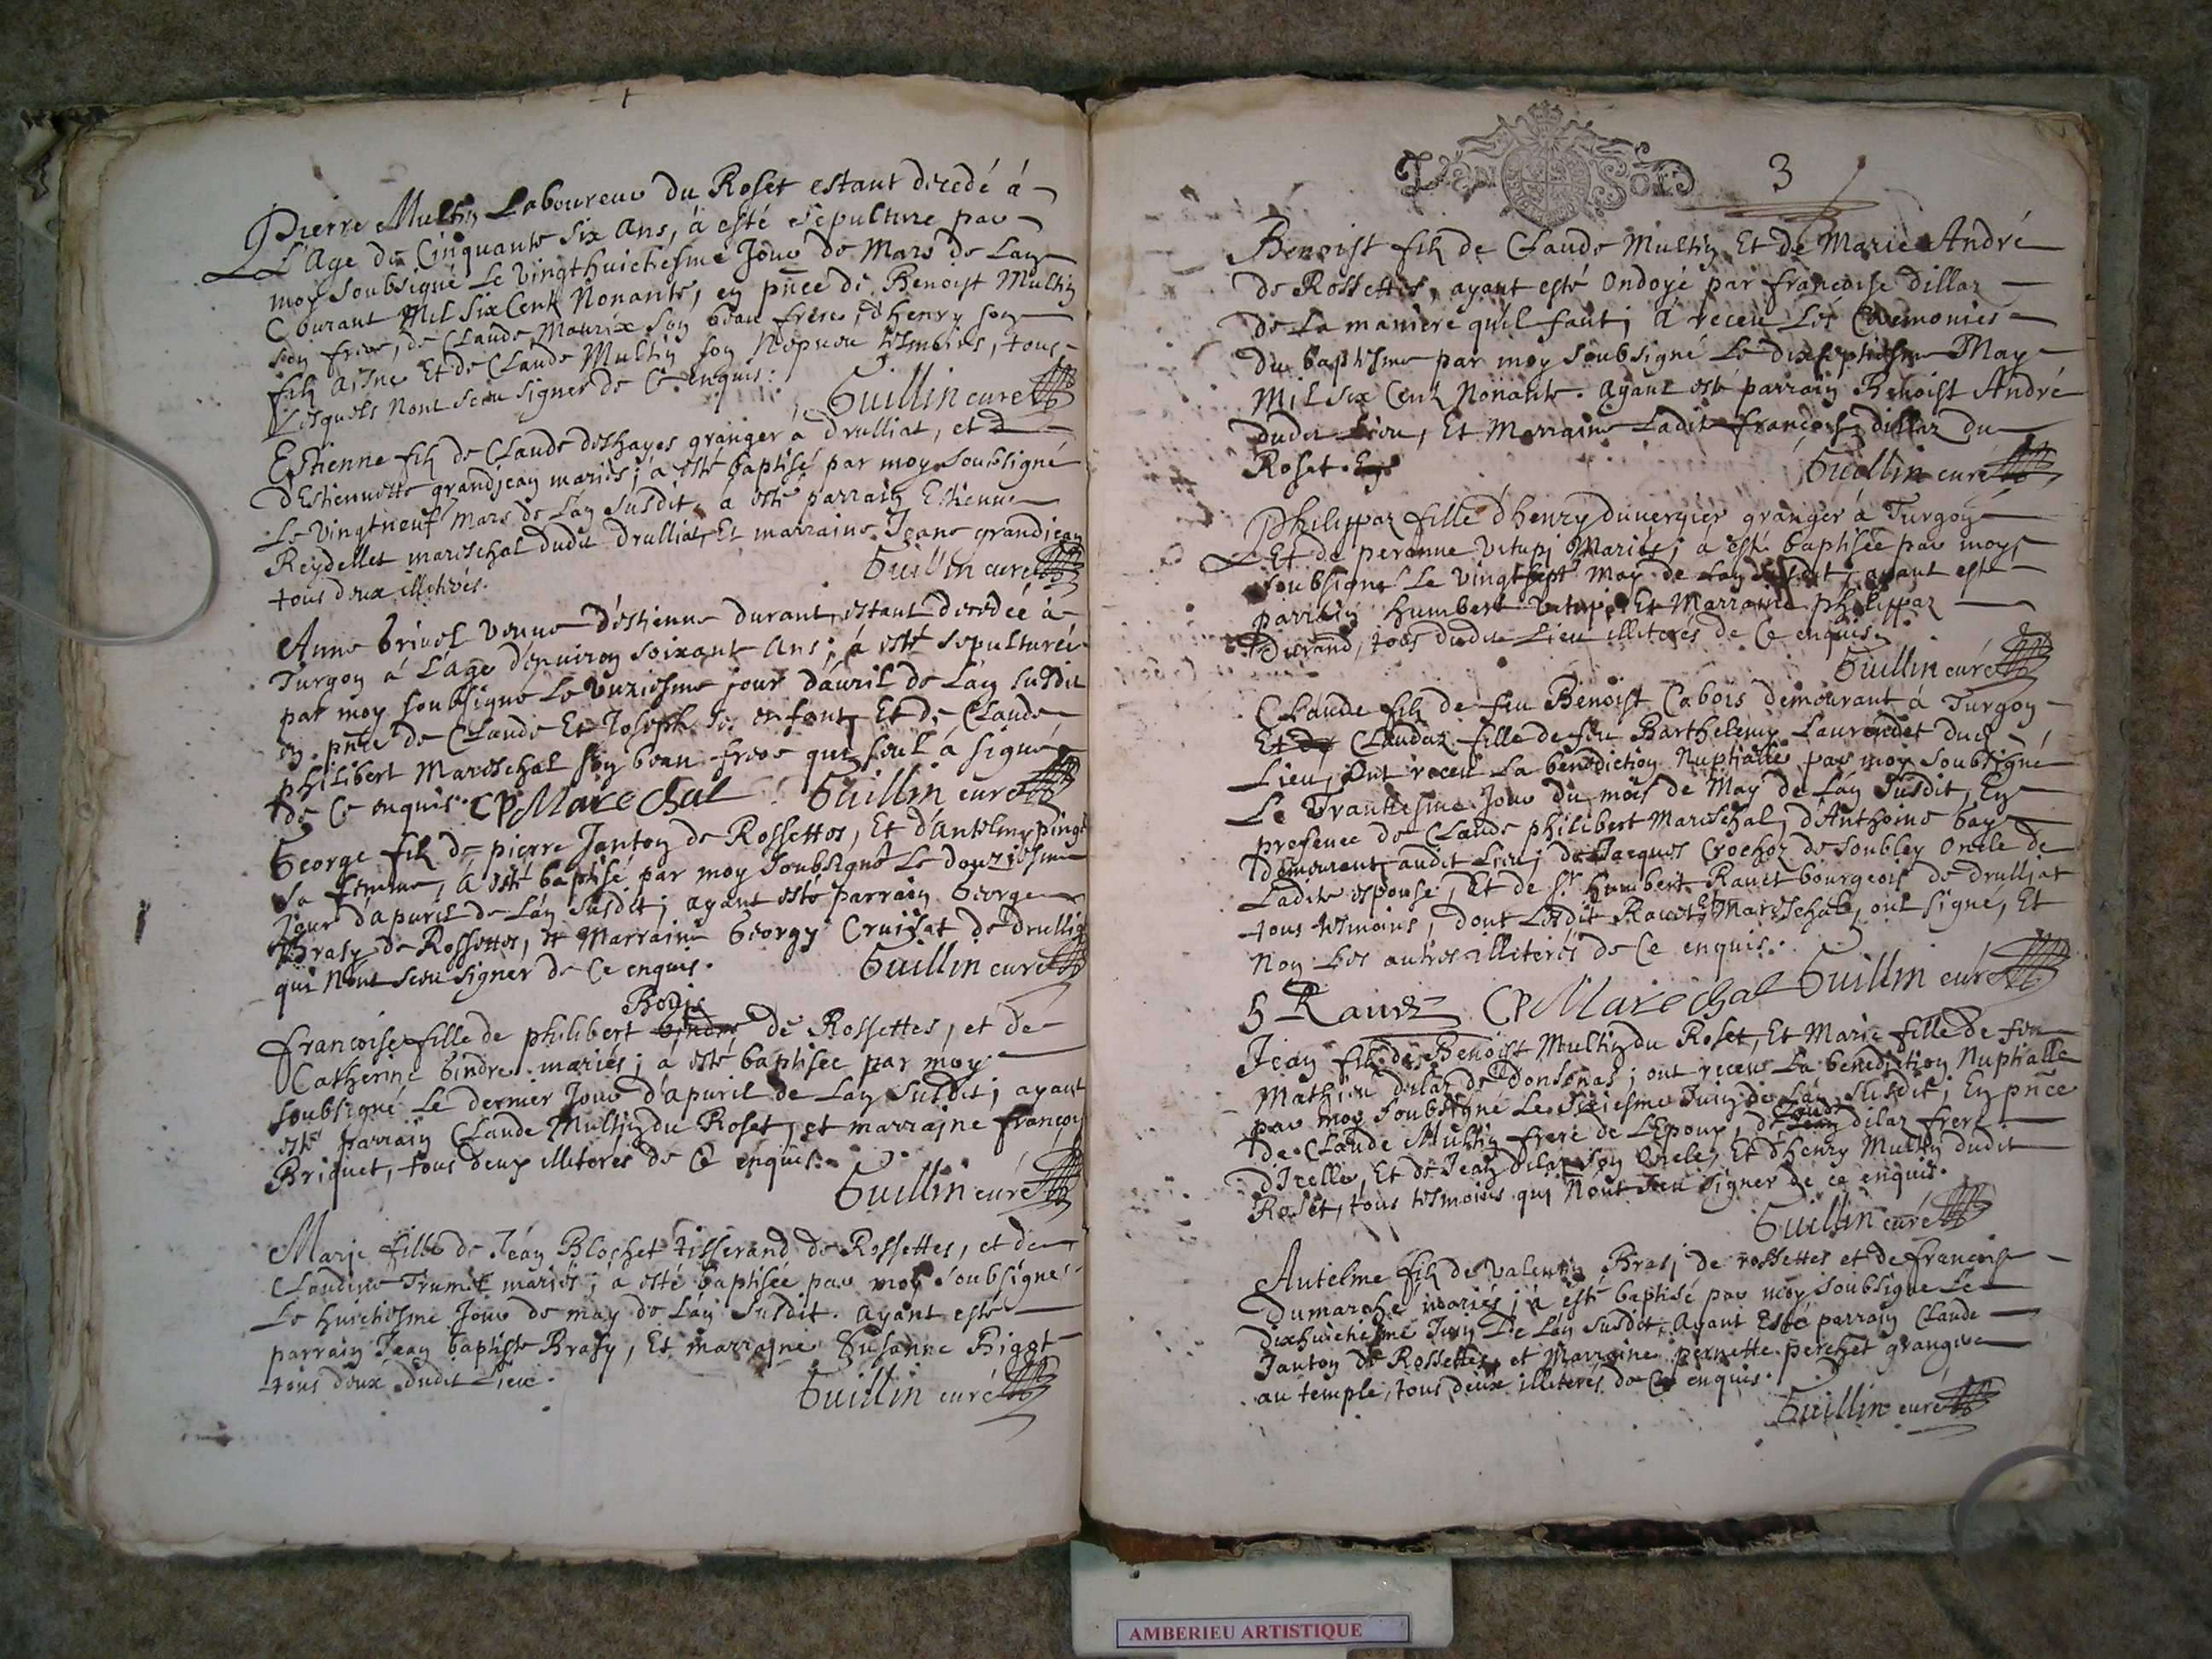 Pierre Multin Laboureur du Roset estant decedé á
L'Age de Cinquante six ans, á esté sepulturé par
moy soubsigné Le vingthuictiesme Jour de Mars de Lan
Courant Mil six Cent Nonante, en pnce de Benoist Multin
son frere, de Claude Maurix son beau frere, d'henry son
filz aisne Et de Claude Multin son Nepveu tesmoins, tous
Lesquels nont sceu signer de Ce enquis.
Guillin curé
Estienne filz de Claude deshayes granger á drulliat, et
d'Estiennette grandjean mariés; á esté baptisé par moy soubsigné
Le vingtneuf mars de Lan susdit, a esté parrain Estienne
Reydellet mareschal dudit drulliat, Et marraine Jeane grandjean
tous deux illiterés.
Guillin curé
Anne brivol veuve d'estienne durant, estant decedée á
Turgon á L'age d'environ soixant ans; á esté sepulturée
par moy soubsigné Le unziesme jour d'avril de Lan susdit
en pnce de Claude Et Joseph enfent Et de Claude
philibert Mareschal son beau frere qui seul á signé
de Ce enquis. CP Marechal Guillin curé
George filz de pierre Janton de Rossettes, Et d'Antelmy pinge
sa femme, á esté baptisé par moy soubsigné Le douziesme
Jour d'apuril de Lan susdit; ayant esté parrain George
Brasy de Rossettes, et Marraine Georgy Cruisat de drullia
qui Nont sceu signer de Ce enquis.
Guillin curé
Bodje
francoise fille de philibert de Rossettes, et de
Catherine bindre mariés; a esté baptisée par moy
soubsigné Le dernier Jour d'apuril de Lan susdit; ayant
esté parrain Claude Multin du Roset, et marraine francoy
Briquet, tous deux illiterés de Ce enquis.
Guillin curé
Marie fille de Jean Blochet tisserand de Rossettes, et de
Claudine Trumet mariés; á esté baptisée par moy soubsigné
Le huictiesme Jour de may de Lan susdit. ayant esté
parrain Jean baptiste Brasy, Et marraine Susanne Bigot
tous deux dudit Lieu.
Guillin curé
3
Benoist filz de Claude Multin Et de Marie André
de Rossettes, ayant esté Ondoyé par francoise dillaz
de La maniere quil faut; á receu Les Ceremonies
du baptesme par moy soubsigné Le dixseptiesme May
Mil six Cent Nonante. ayant esté parrain Benoist André
dudit Lieu, Et Marraine Ladite francoise dillaz du
Roset.
Guillin curé
Philippaz fille d'henry duvergier granger á Turgon
Et de peronne vitupi Mariés; a esté baptisée par moy
soubsigné Le vingtsept may de Lan susdit, ayant esté
parrain humbert vitupi Et Marraine philippaz
Durand, tous dudit Lieu illiterés de Ce enquis.
Guillin curé
Claude filz de feu Benoist Cabois demourant á Turgon
Et Claudaz fille de feu Barthelemy Laurendet dud
Lieu, ont receu La benediction Nuptialle par moy soubsigné
Le Trantiesme Jour du mois de May de Lan susdit, En
presence de Claude philibert Mareschal, d'Anthoine bay
demourant audit Lieu, de Jacques Crochoz de soubley Oncle de
Ladite espouse, Et de Sr humbert Ravet bourgeois de drulliat
tous tesmoins, dont Lesdit Ravet, Et Mareschal, ont signé, Et
Non Les autres illiterés de Ce enquis.
Ravet CP Marechal Guillin curé
Jean filz de Benoist Multin du Roset, Et Marie fille de feu
Mathieu dilaz de donsonas; ont receu La benediction Nuptialle
par moy soubsigné Le Juin de Lan susdit; En pnce
de Claude Multin frere de L'Epoux, de Claude dilaz frere
d'Icelle, Et de Jean dilaz son Oncle, Et d'henry Multin dudit
Roset, tous tesmoins qui Nont sceu signer de ce enquis.
Guillin curé
Antelme filz de valentin Brasj de rossettes et de francoise
Dumarche mariés; á esté baptisé par moy soubsigné Le
dixhuictiesme Juin De Lan susdit. Ayant Esté parrain Claude
Janton de Rossettes, et Marraine pernette perchet grangere
au temple, tous deux illiterés de Ce enquis.
Guillin curé
AMBERIEU ARTISTIQUE